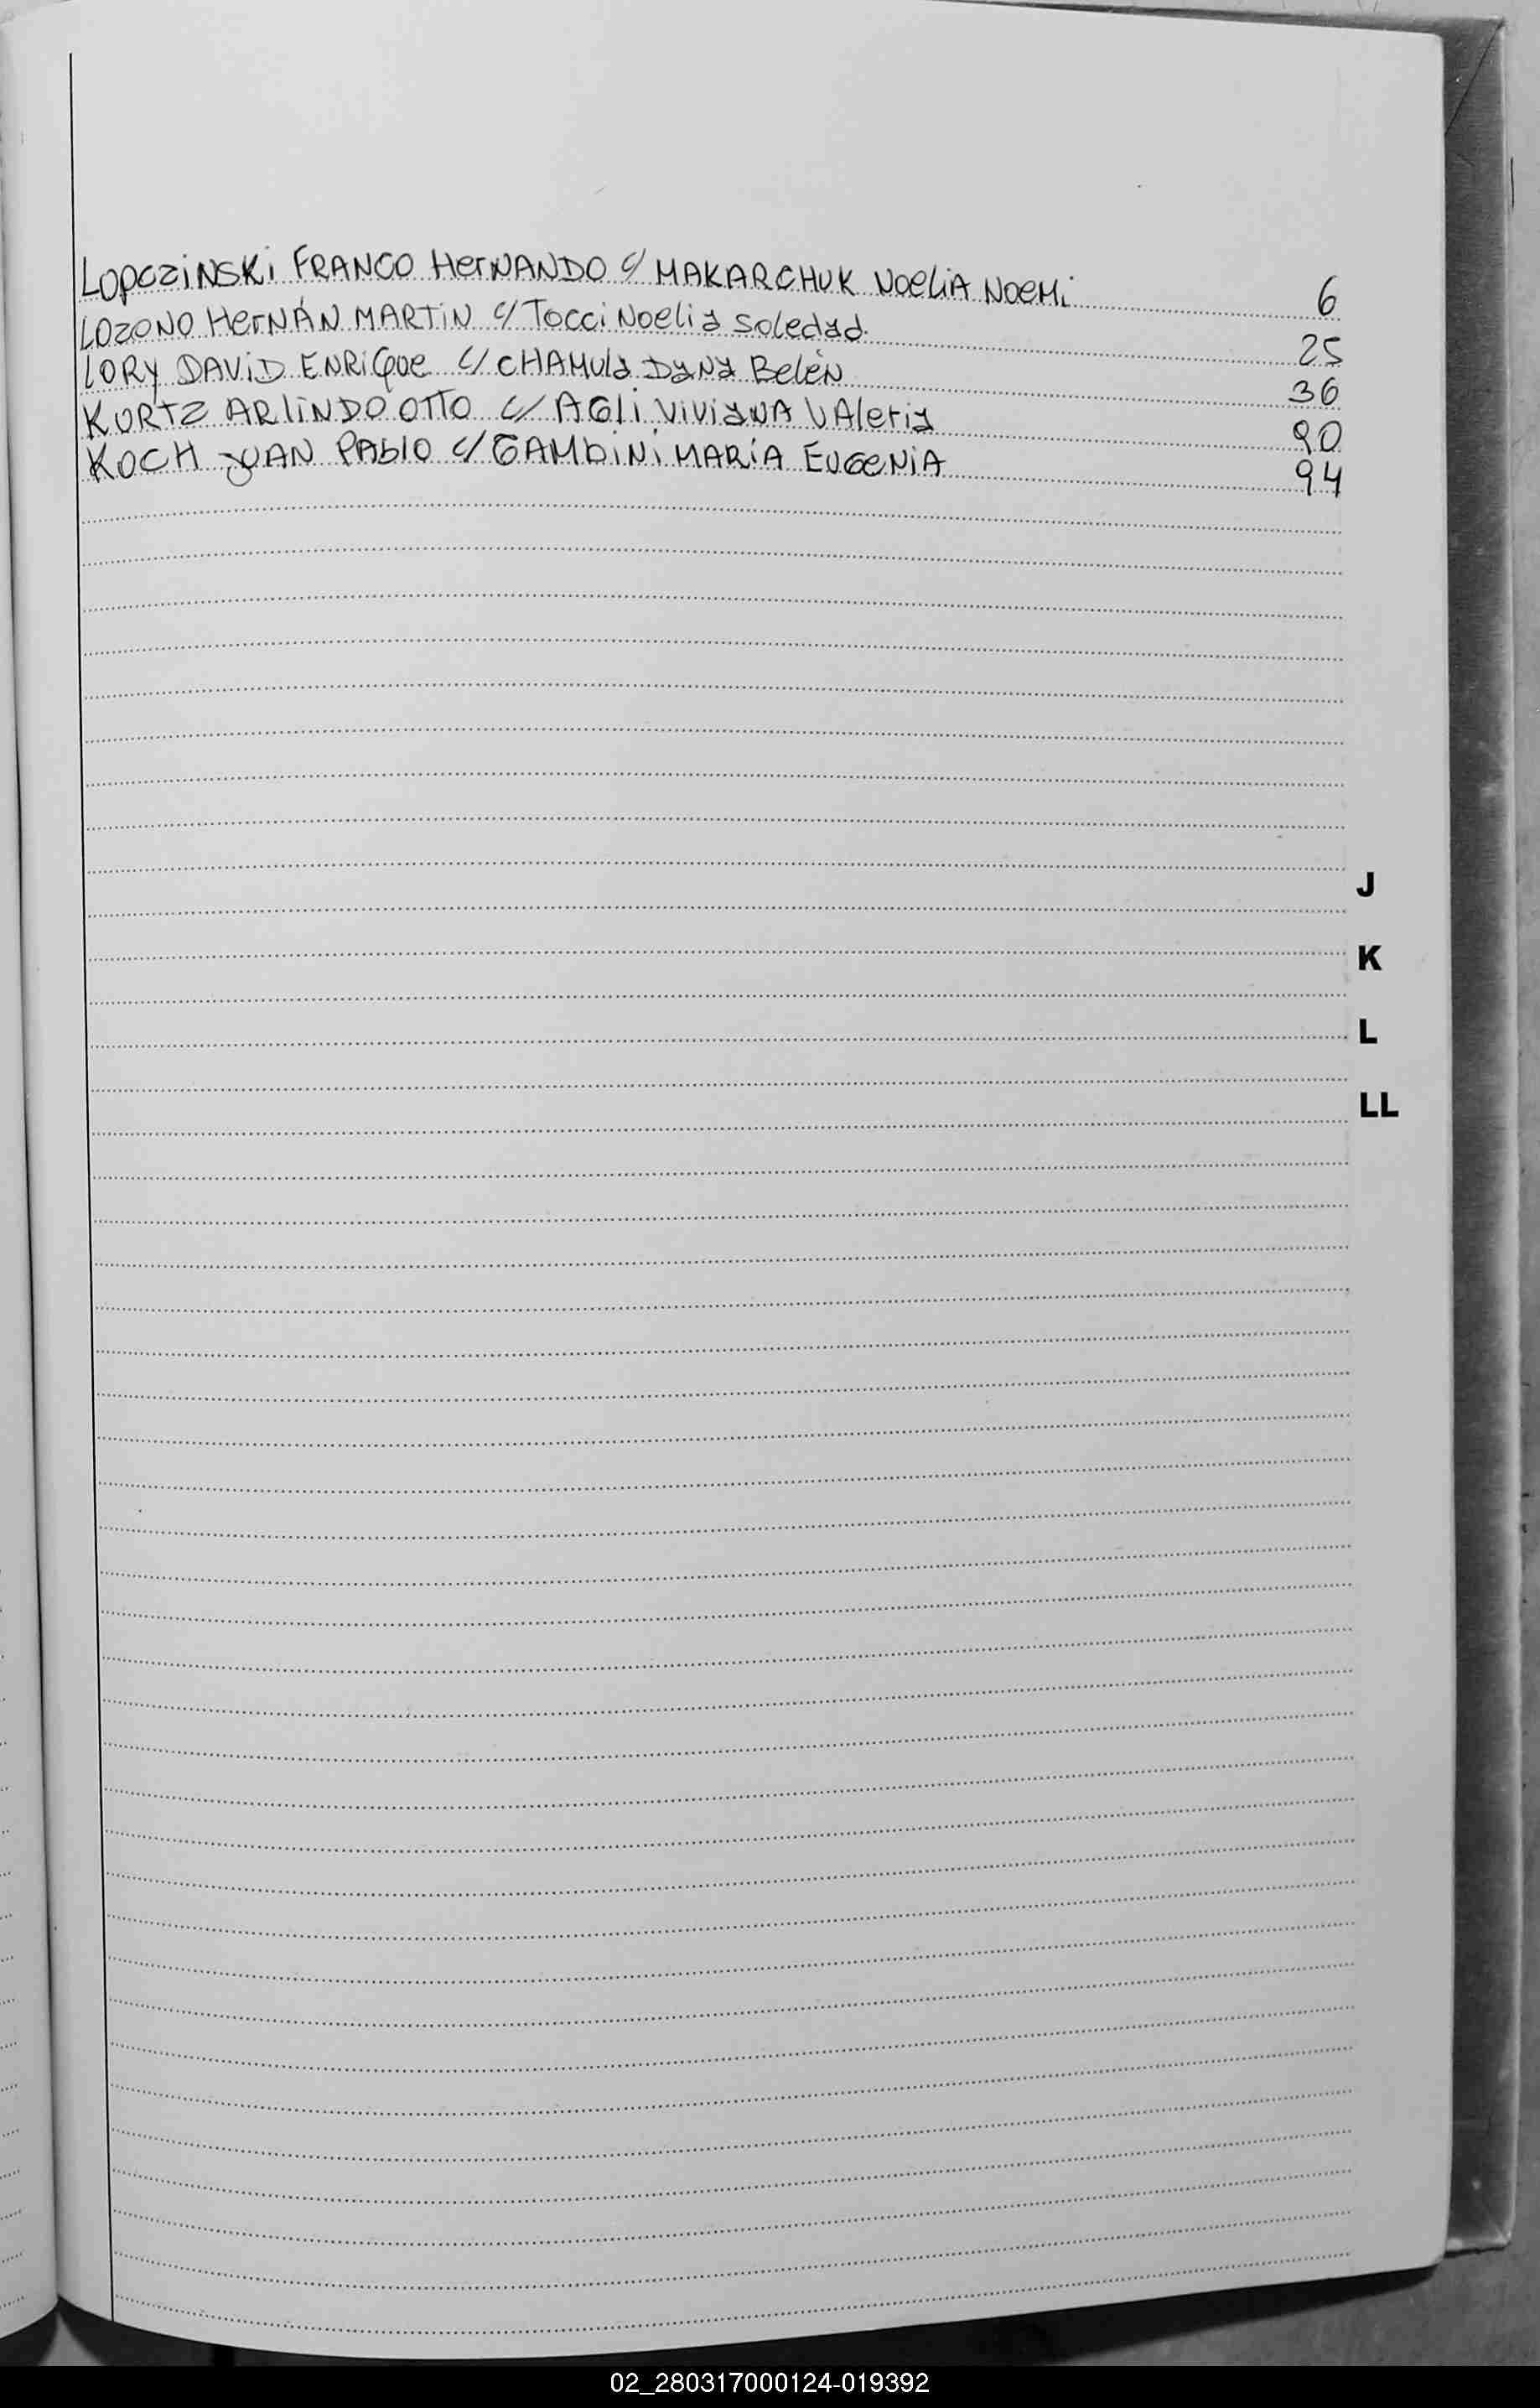 LOPCZINSKI FRANCO HERNANDO c/ MAKARCHUK NOELIA NOEMI 6
LOZONO HERNÁN MARTIN c/ Tocci Noelia Soledad. 25
LORY DAVID ENRIQUE c/ CHAMULA DANA Belén 36
KURTZ ARLINDO OTTO c/ AGLI VIVIANA VALERIA 90
KOCH JUAN PABLO c/ GAMBINI MARÍA EUGENIA 94
J
K
L
LL
02_280317000124-019392